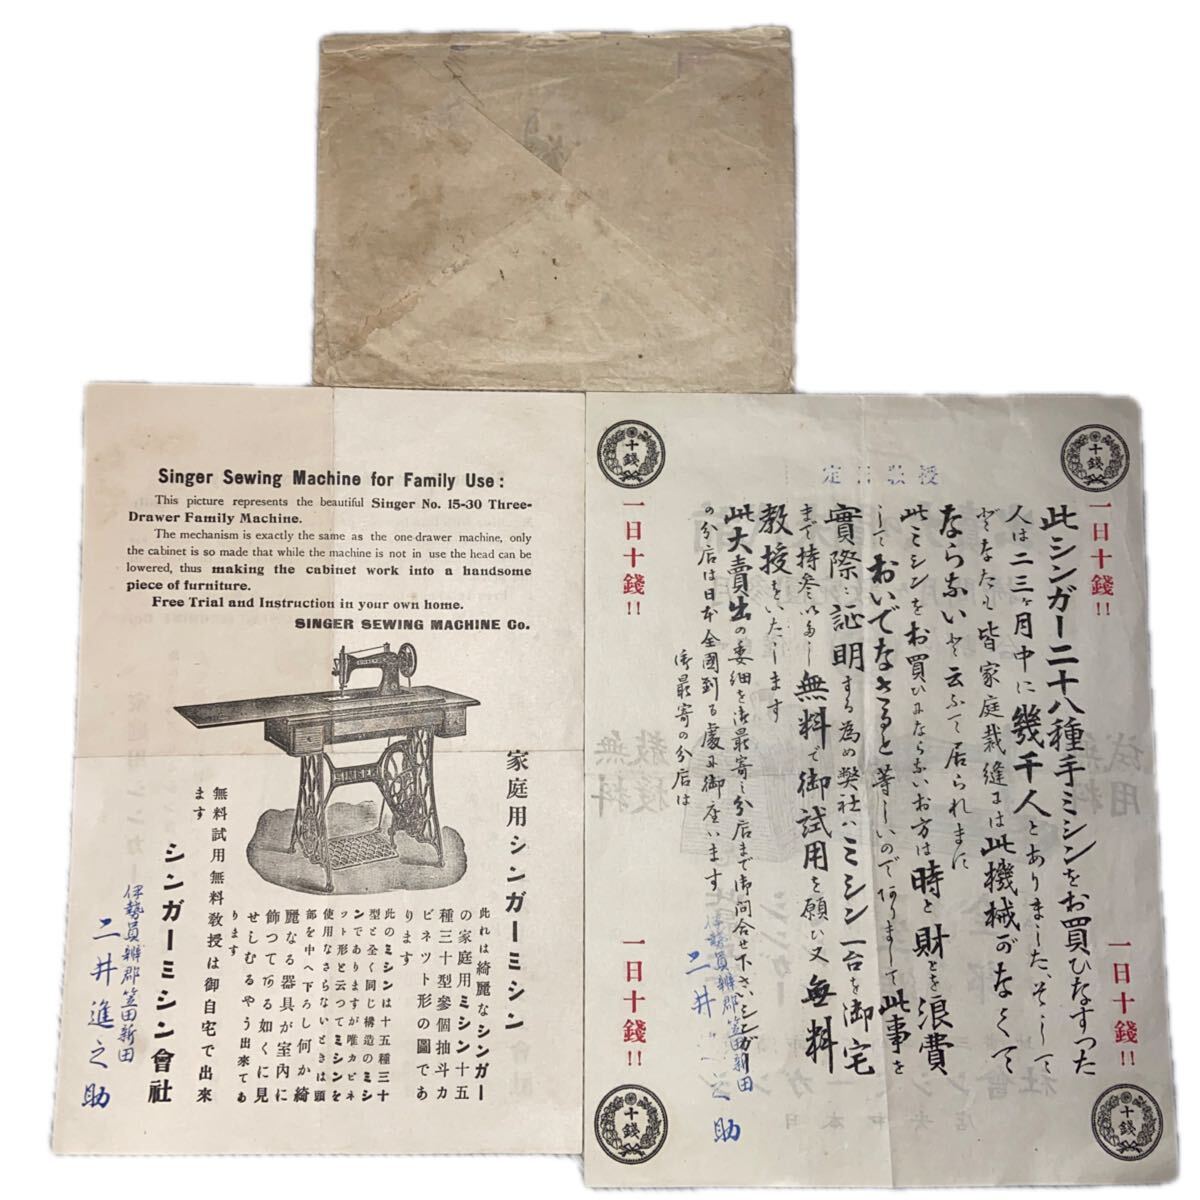 Singer Sewing Machine for Family Use:
This picture represents the beautiful Singer No. 15-30 Three-
Drawer Family Machine.
The mechanism is exactly the same as the one-drawer machine, only
the cabinet is so made that while the machine is not in use the head can be
lowered, thus making the cabinet work into a handsome
piece of furniture.
Free Trial and Instruction in your own home.
SINGER SEWING MACHINE Co.
SINGER
家庭用シンガーミシン
此れは綺麗なシンガー
の家庭用ミシン十五
種三十型參個抽斗カ
ビネツト形の圖であ
ります
此のミシンは十五種三十
型と全く同じ構造のミシ
ンでありますが唯カビネ
ツト形と云つてミシンを
使用なさらないときは頭
部を中へ下ろし何か綺
麗なる器具が室內に
飾つてある如くに見
せしむるやう出來てあ
ります
無料試用無料敎授は御自宅で出來
ます
シンガーミシン會社
伊勢員辨郡笠田新田
二井進之助
十錢
一日十錢!!
十錢
一日十錢!!
此シンガー二十八種手ミシンをお買ひなすつた
人は二三ヶ月中に幾千人とありました、そして
どなたも皆家庭裁縫には此機械がなくて
ならないと云ふて居られます
此ミシンをお買ひにならないお方は時と財とを浪費
しておいでなさると等しいのでありまして此事を
實際に証明する為め弊社ハミシン一台を御宅
まで持參いたし無料で御試用を願ひ又無料
教授をいたします
此大賣出の委細を御最寄之分店まで御問合せ下さいシンガー
の分店は日本全國到る處に御座います
御最寄の分店は
伊勢員辨郡笠田新田
二井之助
一日十錢!!
十錢
一日十錢!!
十錢
授敎日定